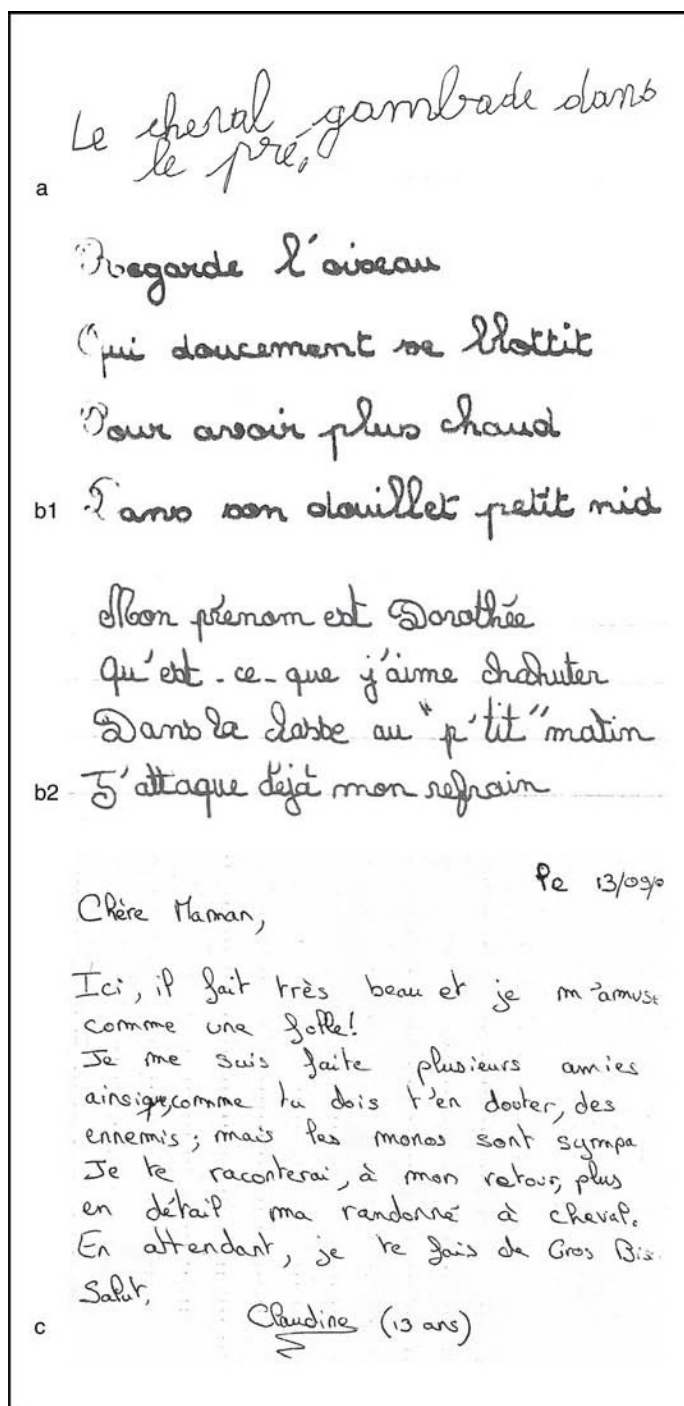 Le cheval gambade dans
le pré.
a
Regarde l'oiseau
Qui doucement se blottit
Pour avoir plus chaud
b1 Dans son douillet petit nid
Mon prénom est Dorothée
qu'est-ce-que j'aime chahuter
Dans la classe au "p'tit" matin
b2 J'attaque déjà mon refrain
le 13/09/0
Chère Maman,
Ici, il fait très beau et je m'amuse
comme une folle!
Je me suis faite plusieurs amies
ainsi que, comme tu dois t'en douter, des
ennemis; mais les monos sont sympa
Je te raconterai, à mon retour, plus
en détail ma randonné à cheval.
En attendant, je te fais de Gros Bis
Salut,
c Claudine (13 ans)